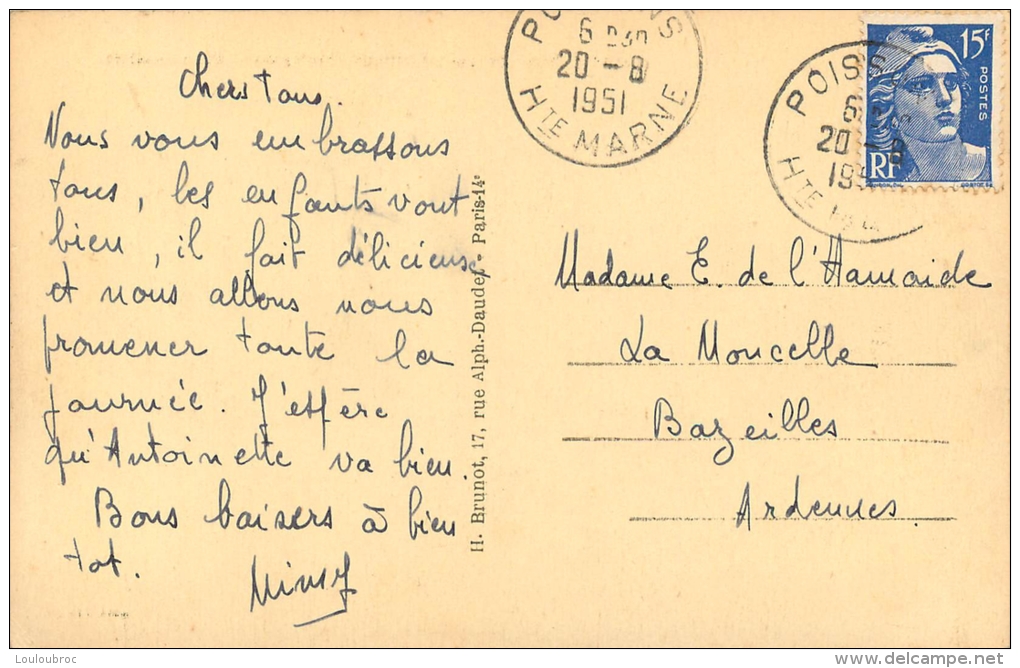 Chers tous.
Nous vous embrassons
tous, les enfants vont
bien, il fait délicieuse
et nous allons nous
promener toute la
journée. J'espère
qu'Antoinette va bien.
Bons baisers à bien
tot.
H. Brunot, 17, rue Alph.-Daudet - Paris-14e
20 - 8
1951
HTE MARNE
POISS
20 - 8
195
HTE
15F
POSTES
RF
Madame E. de l'Hamaide
La Moncelle
Bazeilles
Ardennes.
Louloubroc
© www.delcampe.net